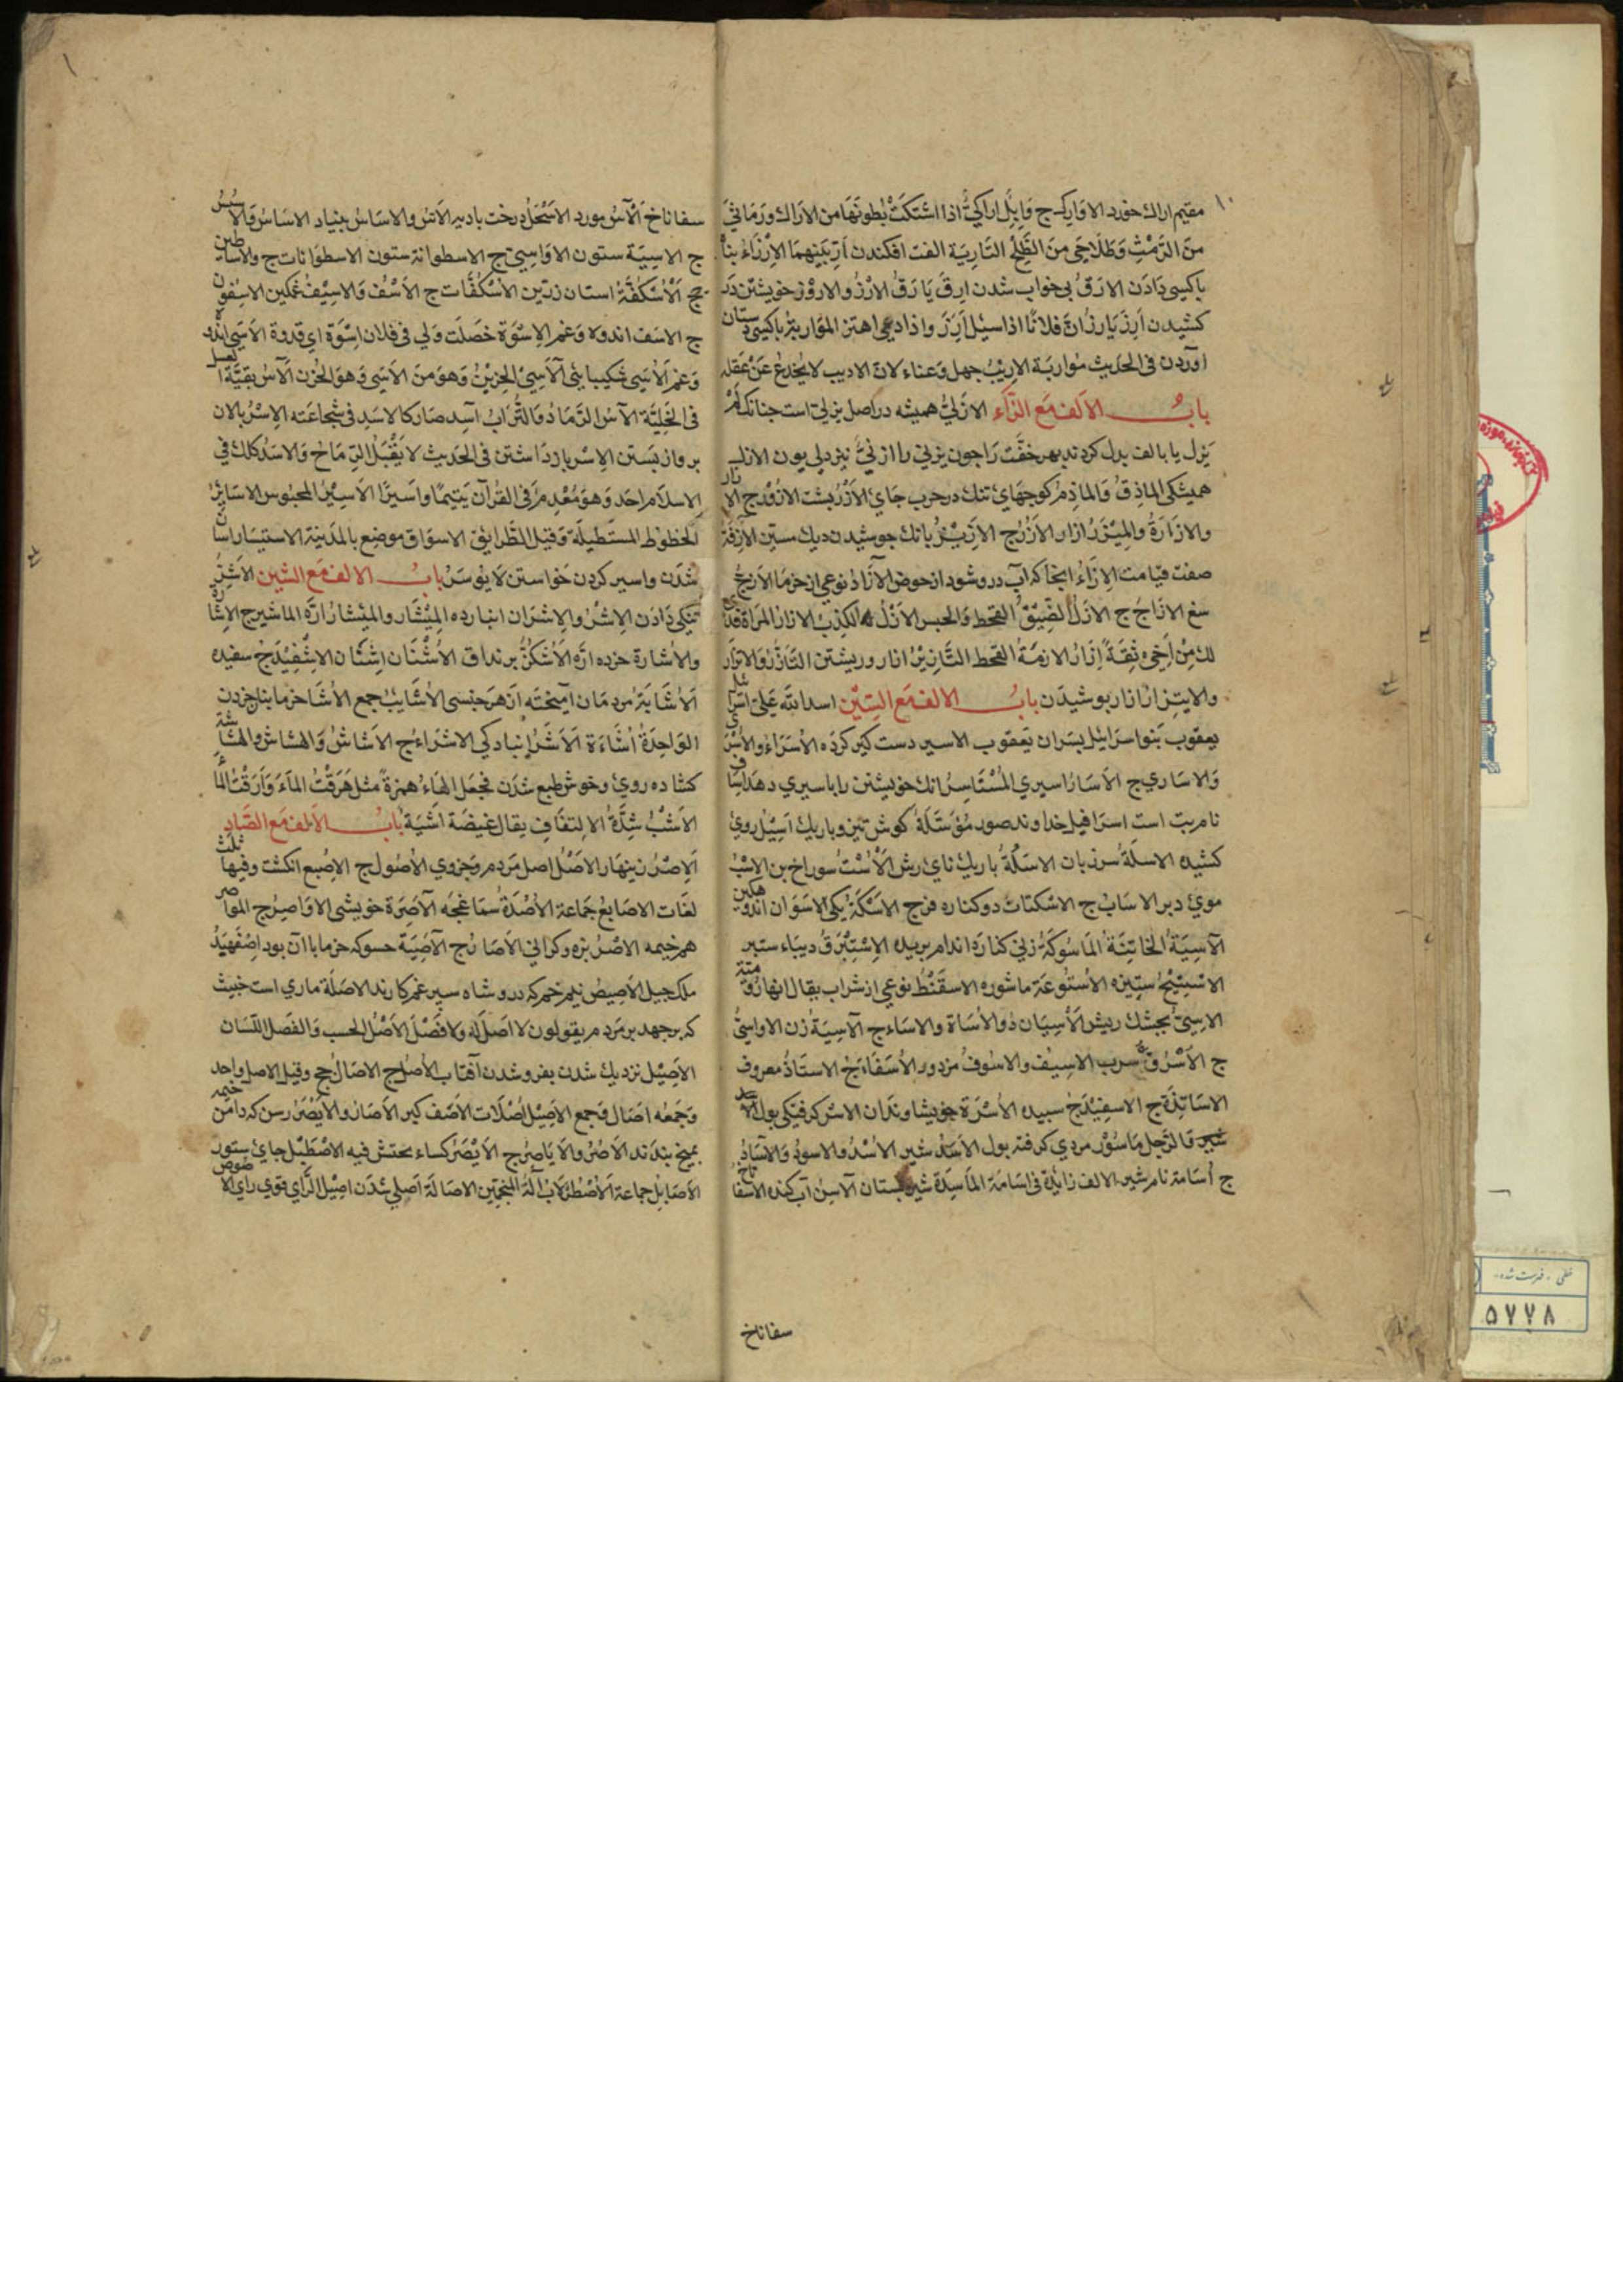 مقیم اراك خورد الاوارك ج وَاِبِل اراكيٌّ اذا اشتكَتْ بُطونَهَا من الاراك ورَمَاثَى
منَ الرَمْثِ وَطَلَاحَى منَ الطَلْحِ التَارِيَة الفت افكندن اَرِّ بَينهمَا الاِرْزَاءُ بناْ
باكسى دَادَن الارَقُ بى خواب شدن ارِقَ يَارَقُ الارْزُ والاروْز خويشتن دَر
كشيدن اَرِزَ يَارزُ انَّ فلانًا اذا سئل اَرَزَ واذا دعى اهتز المؤَاربَةُ باكسى دستان
اوردن فى الحديث مؤاربَة الاريْبُ جهل وَعناء لانّ الاديب لا يُخْدعُ عَنْ عَقله
بابُ الاَلف مَع الزَّاء الازَلىُّ هميشه در اصل يزلىّ است چنانك لَمْ
يَزل يا بالف بدل كردند بهر خفّت رَا چون يزنى را ازنىُّ نيز دلى بون الازل
هميشكى الماذِقُ وَالماذِمُ كوجهَاىْ تنك در حرب جَاىْ الاَزْرُ پشت الازُرُ ج الازار
والازَارَةُ والمِيْزَرُ ازار الاُزُرُ ج الاَزِيْزُ بانك جوشيدن ديك مستين الآزِفَةُ
صفت قيامت الاِزَاءُ انجا كه آب درو شود از حوض الآزَاذُ نوعى از خرمَا الاَزَجُ
سغ الازَاجُ ج الازلُ الضِّيْقُ القحط وَالحبس الاَزْلُ الكذِبُ الازارُ المَراة فدًى
لك مِنْ اَخِى ثِقَةٍ اِزَارُ الازمَةُ القحط التَّازِيْرُ ازار ور پشتن التَّاَزُّرُ وَالاتزار
والايتِزارُ ازار پوشيدَن بابُ الالف مَع السّيْن اسدالله عَلىّ اسْرَائيل
يعقوب بَنوا سرَائيل پسَران يَعقوب الاسير دست كير كرَده الاُسَرَاءُ والاَسْرَى
وَالاسَارى ج الاَسَارُ اسيرى المُسْتَاسِرُ انك خويشتن را باسيرى دهد اِسَاف
نام بت است اسرَافيل خداوند صور مُؤَسَّلَةٌ كوش تيز و باريك اَسِيْلُ روئ
كشيده الاسلَةُ سر زبان الاسَلَةُ باريك ناى ريش الاُسْتُ سوراخ بن الاِسْبُ
موئ دبر الاسَابُ ج الاسْكتان دو كناره فرج الاَسْكَةُ يكى الاسَوَان اندوهكين
الآسِيَةُ الخاتِنَةُ المَاسُوكَةُ زنى كنارَه اندام بريده الاِسْتَبْرَقُ ديبَاء ستبر
الاسِىُّ پجشك ريش الاُسِيَان دُو الاُسَاة والاسَاء ج الآسِيَةُ زن الاواسِىُّ
ج الاُسْرُفُّ سرب الاسِيْف والاسُوفُ مزدور الاُسَفَاء ج الاستَاذُ معروف
الاسَاتِذَة ج الاسفِيْدَاجُ سبيده الاُسْرَة خويشاوندَان الاسْر كرفتكى بول
قال الرَّجل مَاسُوْر مردى كرفته بول الاَسَدُ شير الاُسْدُ والاسودُ وَالآسَادُ
ج اُسَامة نام شير الالف زايدَة فى اسَامَة المَاسَدَة شيرستان الآسِنُ آب كنده الاسفاناخ
سفاناخ
سفاناخ اَلآسُ مورد الاَسْحَلُ درخت باديه الاَسُّ والاسَاسُ بنياد الاسَاسُ وَالاُسُسُ
ج الاسِيَة ستون الاوَاسِىّ ج الاسطوانة ستون الاسطوَانات ج والاسَاطين
ج اَلاُسْكفَّةُ استان زرّين الاُسْكُفَّات ج الاَسْفُ وَالاسِيْفُ غمكين الاسِفُون
ج الاسَف اندوه وَغم الاِسْوَة خصَلَت وَلى فى فلان اِسْوَة اى قدوة الاَسَى اندوه
وَغم اَلاُسَى شكيبايى الآسِى الحزيْنُ وَهوَ منَ الاَسَى وَهوَ الحُزن اَلآسُ بقيّة العسل
فى الخَلِيَّة الآسُ الرَّمَادُ وَالتُّرَابُ اَسِدَ صَار كالاسَدِ فى شجَاعَته الاِسْرُ پالان
بر واز بَستن الاِسْر باز دَاشتن فى الحَديث لا يَقْبَلُ الرِّمَاحُ وَالاسَدُ كذلك فى
الاسلَام احَد وَهوَ مُعْدم وَفى القرآن يَتيمًا وَاسِيرًا الاَسِيْرُ المحبوس الاسَابيّ
الخطوط المستَطيلَة وَقيل الطَّرايق الاسوَاق موضِع بالمدينة الاستيسَار اسان
شدَن واسير كردن خواستن لا يؤسَرُ بابُ الالف مَع الشين الاشِرُ
تيكى دَادَن الاِشْرُ والاِشرَان انبار ده المِيْشَار والميْشَارُ ارّه الماشير ج الاشَارَة
والاُشَارَة خرده ارَّه الاُشْكُزُّ برنداق الاُشْنَان اِشنَان الاِشْفِيْذَجُ سفيده
اَلاُشَابَةُ مردمَان آميخته اَز هرَ جنسى الاُشَايبُ جمع الاَشَا خرما بنا خردن
الوَاحِدَة اُشَاءَة اَلاَشَرُ انباد كى الاشرَاءُ ج الاَشاشُ وَالهشاش والهشاشة
كشاده روئ وخوش طبع شدَن فجعَل الهَاءُ همزةً مثل هَرَقْتُ المَاءَ وَاَرَقْتُ الماءَ
الاَشَبُ شِدَّةُ الالتفَاف يقال غَيضَة اَشِبَة بابُ الاَلف مَع الصَّاد
اَلاِصْرُ زينهَار الاَصْلُ اصل مَردم وَجزوى الاُصُول ج الاِصْبَع انكشت وفيها ثلث
لغَات الاصَابعُ جَمَاعة الاُصْدَةُ سمَاغجَه الآصِرَة خويشى الاوَاصِرُ ج المؤاصر
هم خيمه الاصْرُ بزه وكرانى الاَصَارُ ج الآصِيَة حسوكه خرما با آن بود اِصْفَهْبَدُ
ملك جيل الاَصِيصُ نيم خم كه درو شاه سپرغم كارند الاصَلَة مارى است خبيث
كه بر جهد بر مَردم يقولون لا اَصَلَ لَه ولا فَصْلَ الاَصْلُ الحسب وَالفَصل اللّسَان
الاَصِيْل نزديك شدن بفرو شدن آفتاب الاُصُلُ ج الاصَالُ جج وَقيل الاصل وَاحد
وَجَمعُه اصَال وَجمع الاَصِيْل اُصْلَات الاَصَف كبر الاَصَار والاَيْصَرُ رسن كه دَامن خيمه
بميخ بندَند الاُصُرُ والايَاصِرُ ج الايْصَرُ كسَاء يحتش فيه الاصْطَبْل جاىْ ستور
الاَصَابِل جماعة اَلاُصْطُرْلَابُ آلَةُ المنجّمين الاصَالَة اَصلى شدَن اصِيْل الرَّأى قوى راى
خطى . فهرست شده
۵۷۷۸